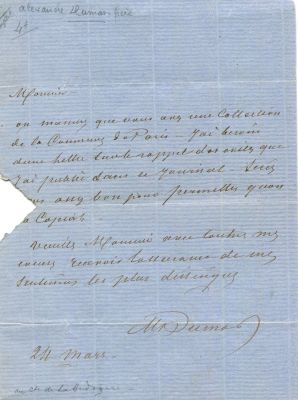 Alexandre Dumas père
Monsieur
on m'annonce que vous avez une Collection
de la Commune de Paris — J'ai besoin
d'une lettre sur le rappel des exilés que
J'ai publié dans ce Journal — Serez
vous assez bon pour permettre qu'on
la Copie.
Veuillez Monsieur avec toutes mes
excuses recevoir l'assurance de mes
Sentimens les plus distingués
Al Dumas
24 Mars.